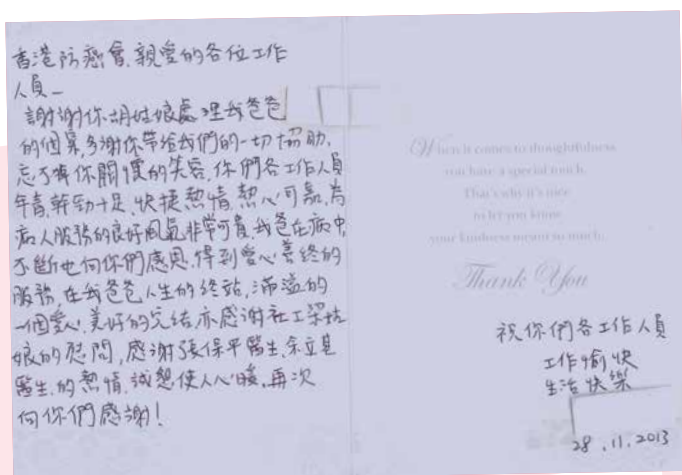 香港防癌會,親愛的各位工作
人員_
謝謝你胡姑娘處理我爸爸
的個案,多謝你帶給我們的一切協助,
忘不了你關懷的笑容,你們各工作人員
年青,幹勁十足,快捷,熱情,熱心可嘉,為
病人服務的良好風氣非常可貴,我爸在病中
不斷也向你們感恩,得到愛心善終的
服務,在我爸爸人生的終站,滿溢的
一個愛心,美好的完結,亦感謝社工梁姑
娘的慰問,感謝張保平醫生,余立
醫生,的熱情,誠懇使人心暖,再次
向你們感謝!
When it comes to thoughtfulness
you have a special touch,
That's why it's nice
to let you know
your kindness meant so much.
Thank You
祝你們各工作人員
工作愉快
生活快樂
28.11.2013